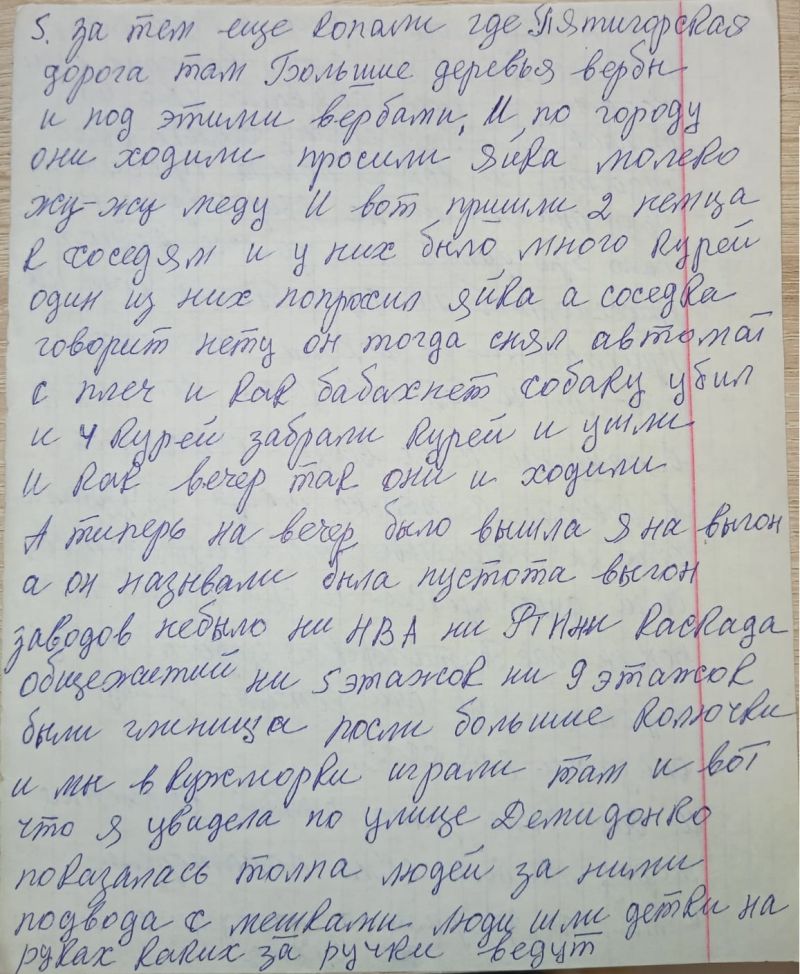 5. за тем еще копали где Пятигорская
дорога там Большие деревья вербы
и под этими вербами, И по городу
они ходили просили яйка молеко
жу-жу меду И вот пришли 2 немца
к соседям и у них было много курей
один из них попросил яйка а соседка
говорит нету он тогда снял автомат
с плеч и как бабахнет собаку убил
и 4 курей забрали курей и ушли
и как вечер так они и ходили
А типерь на вечер было вышла я на выгон
а он називали была пустота выгон
заводов небыло ни НВА ни РТИ ни каскада
общежитий ни 5 этажок ни 9 этажок
были глиница росли большие колючки
и мы в кужморки играли там и вот
что я увидела по улице Демидонко
показалась толпа людей за ними
подвода с мешками люди шли детки на
руках каких за ручки ведут